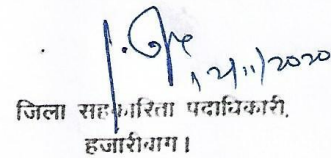 12/11/2020
जिला सहकारिता पदाधिकारी,
हजारीबाग।